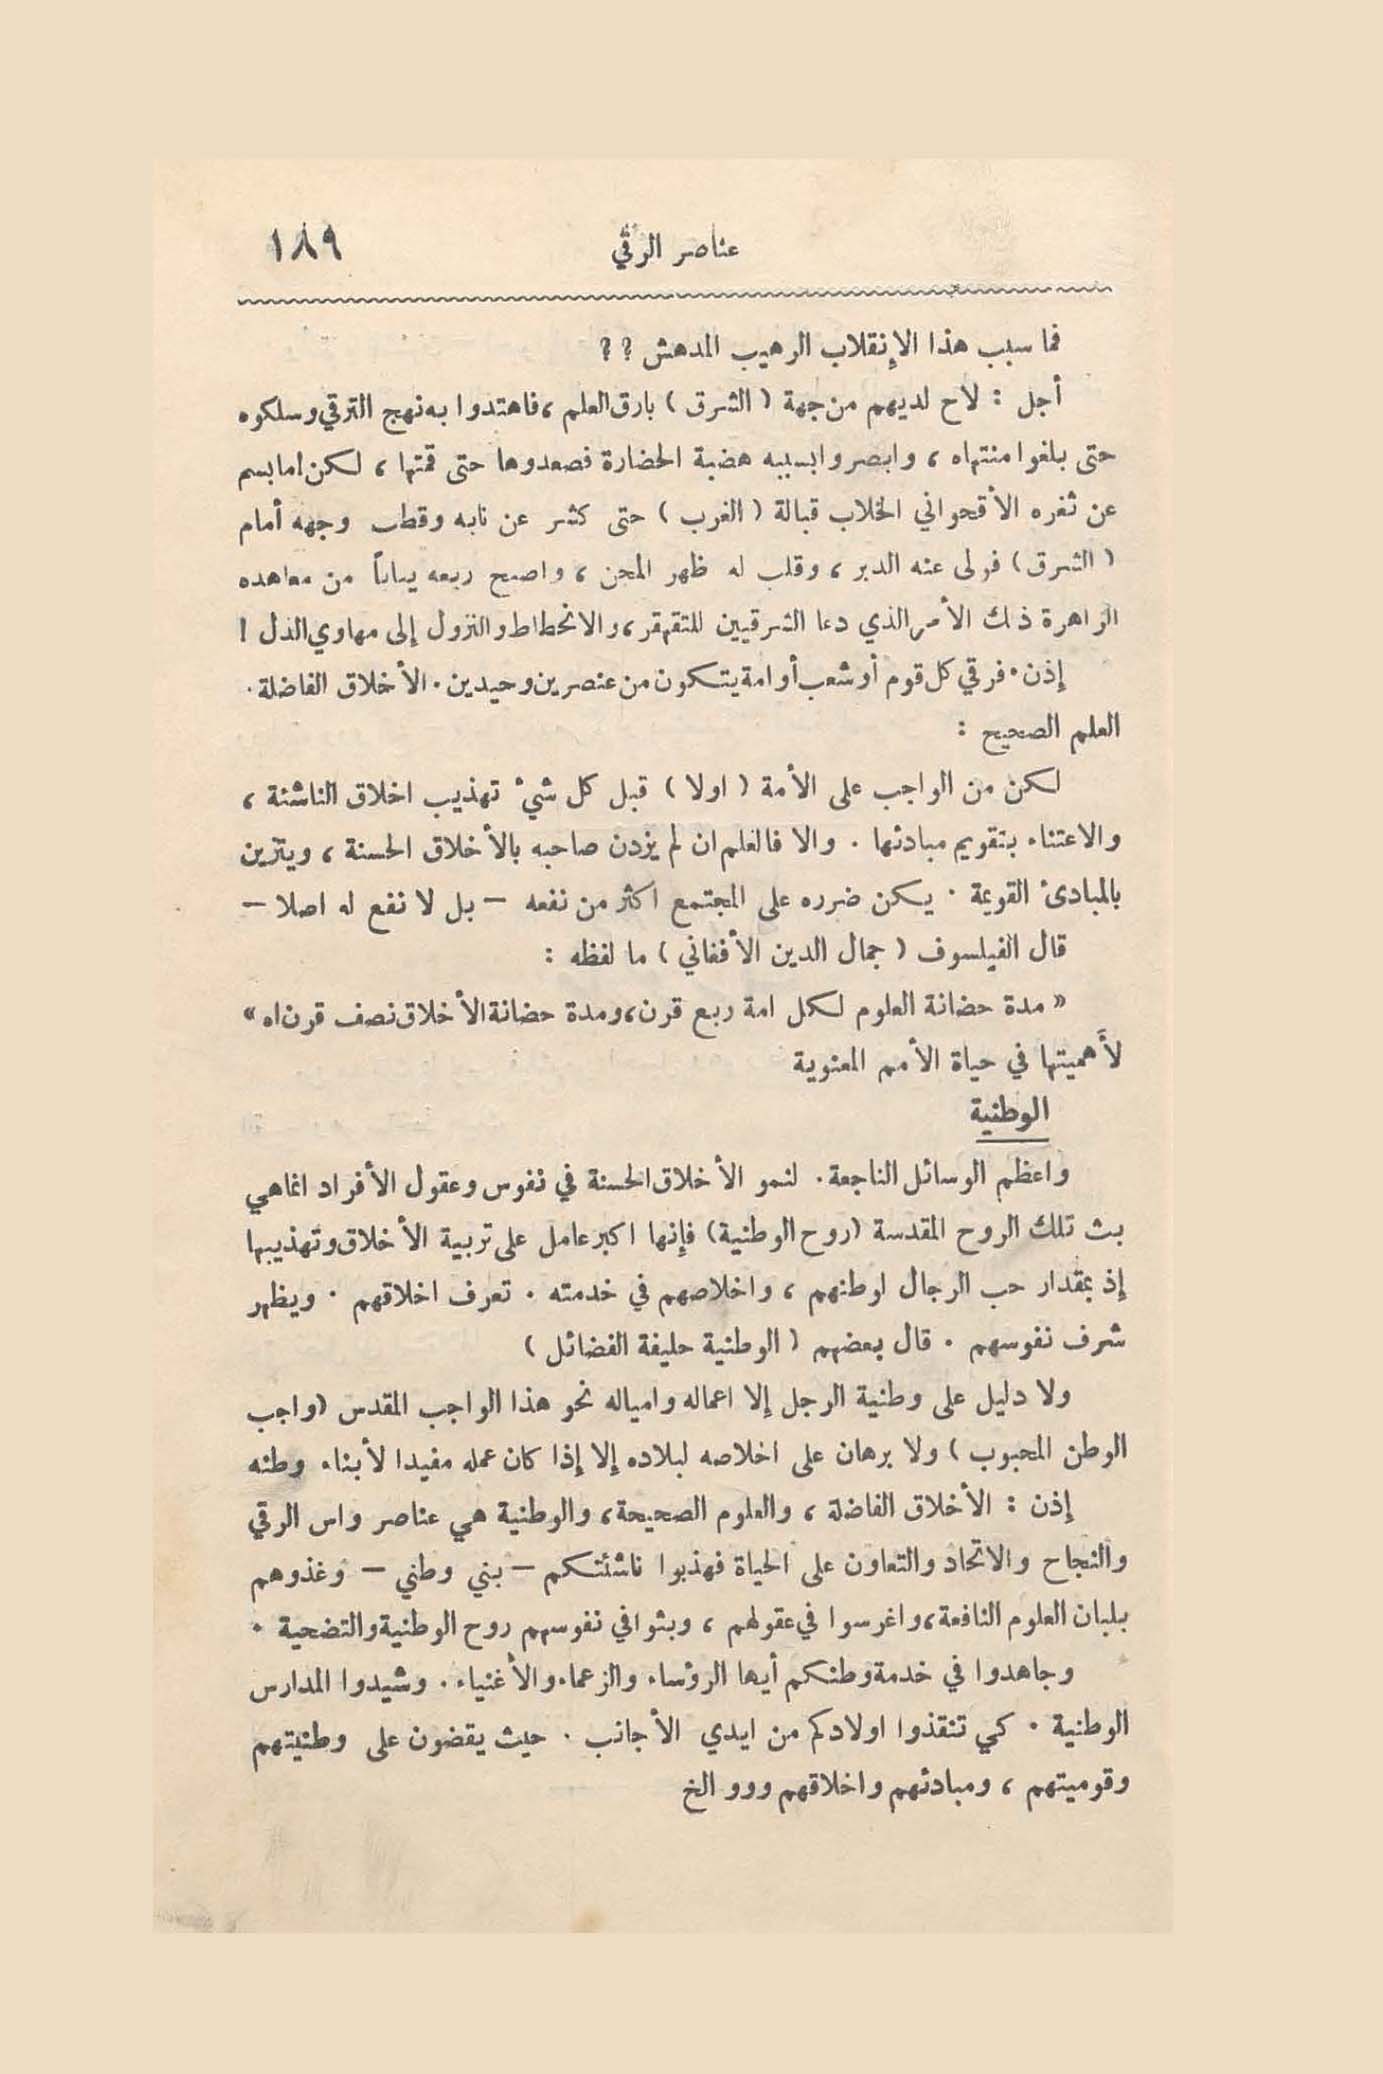 عناصر الرقي
١٨٩
فما سبب هذا الإنقلاب الرهيب المدهش ؟ ؟
أجل : لاح لديهم من جهة ( الشرق ) بارق العلم ، فاهتدوا به نهج الترقي وسلكوه
حتى بلغوا منتهاه ، وابصروا بسببه هضبة الحضارة فصعدوها حتى قمتها ، لكن لما بسم
عن ثغره الأقحواني الخلاب قبالة ( الغرب ) حتى كشر عن نابه وقطب وجهه أمام
( الشرق ) فولى عنه الدبر ، وقلب له ظهر المجن ، واصبح ربعه يباباً من معاهده
الزاهرة ذلك الأمر الذي دعا الشرقيين للتقهقر ، والانحطاط والنزول إلى مهاوي الذل !
إذن . فرقي كل قوم أو شعب أو امة يتكون من عنصرين وحيدين . الأخلاق الفاضلة .
العلم الصحيح :
لكن من الواجب على الأمة ( اولا ) قبل كل شيء تهذيب اخلاق الناشئة ،
والاعتناء بتقويم مبادئها . والا فالعلم ان لم يزدن صاحبه بالأخلاق الحسنة ، ويتزين
بالمبادئ القويمة . يكن ضرره على المجتمع اكثر من نفعه – بل لا نفع له اصلا –
قال الفيلسوف ( جمال الدين الأفغاني ) ما لفظه :
« مدة حضانة العلوم لكل امة ربع قرن ، ومدة حضانة الأخلاق نصف قرن اه »
لأَهميتها في حياة الأمم المعنوية
الوطنية
واعظم الوسائل الناجعة . لنمو الأخلاق الحسنة في نفوس وعقول الأفراد انما هي
بث تلك الروح المقدسة ( روح الوطنية ) فإنها اكبر عامل على تربية الأخلاق وتهذيبها
إذ بمقدار حب الرجال لوطنهم ، واخلاصهم في خدمته . تعرف اخلاقهم . ويظهر
شرف نفوسهم . قال بعضهم ( الوطنية حليفة الفضائل )
ولا دليل على وطنية الرجل إلا اعماله وامياله نحو هذا الواجب المقدس ( واجب
الوطن المحبوب ) ولا برهان على اخلاصه لبلاده إلا إذا كان عمله مفيدا لأبناء وطنه
إذن : الأخلاق الفاضلة ، والعلوم الصحيحة ، والوطنية هي عناصر واس الرقي
والنجاح والاتحاد والتعاون على الحياة فهذبوا ناشئتكم – بني وطني – وغذوهم
بلبان العلوم النافعة ، واغرسوا في عقولهم ، وبثوا في نفوسهم روح الوطنية والتضحية .
وجاهدوا في خدمة وطنكم أيها الرؤساء والزعماء والأغنياء . وشيدوا المدارس
الوطنية . كي تنقذوا اولادكم من ايدي الأجانب . حيث يقضون على وطنيتهم
وقوميتهم ، ومبادئهم واخلاقهم ووو الخ